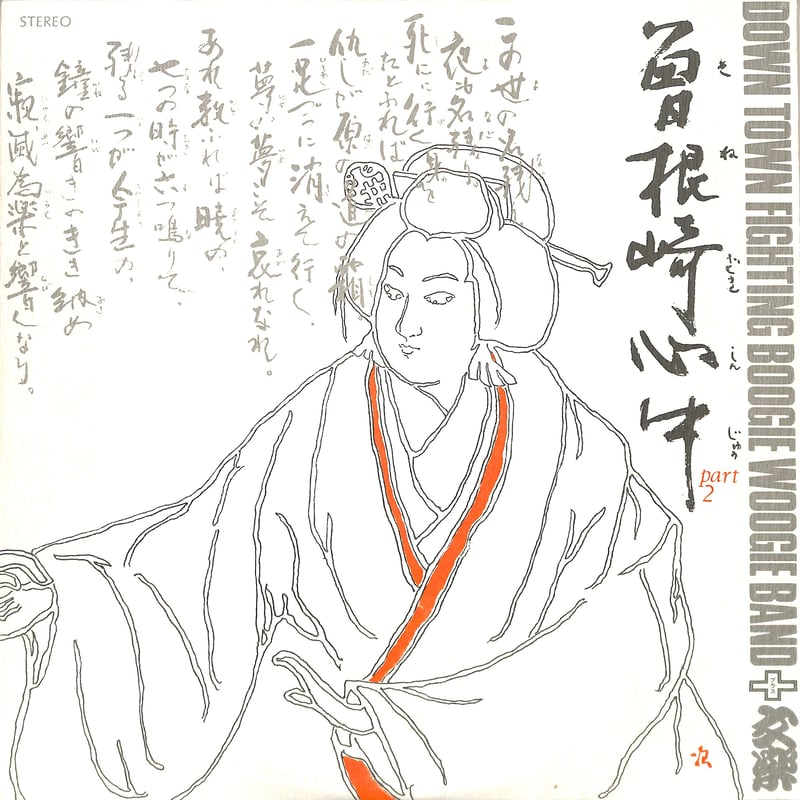 STEREO
曽根崎心中
そねざきしんじゅう
part
2
DOWN TOWN FIGHTING BOOGIE WOOGIE BAND
プラス
文楽
この世の名残
夜も名残り
死にに行く身を
たとふれば
仇しが原の道の霜。
一足づつに消えて行く、
夢の夢こそ哀れなれ。
あれ数ふれば暁の、
七つの時が六つ鳴りて、
残る一つが今生の、
鐘の響きのきき納め
寂滅為楽と響くなり。